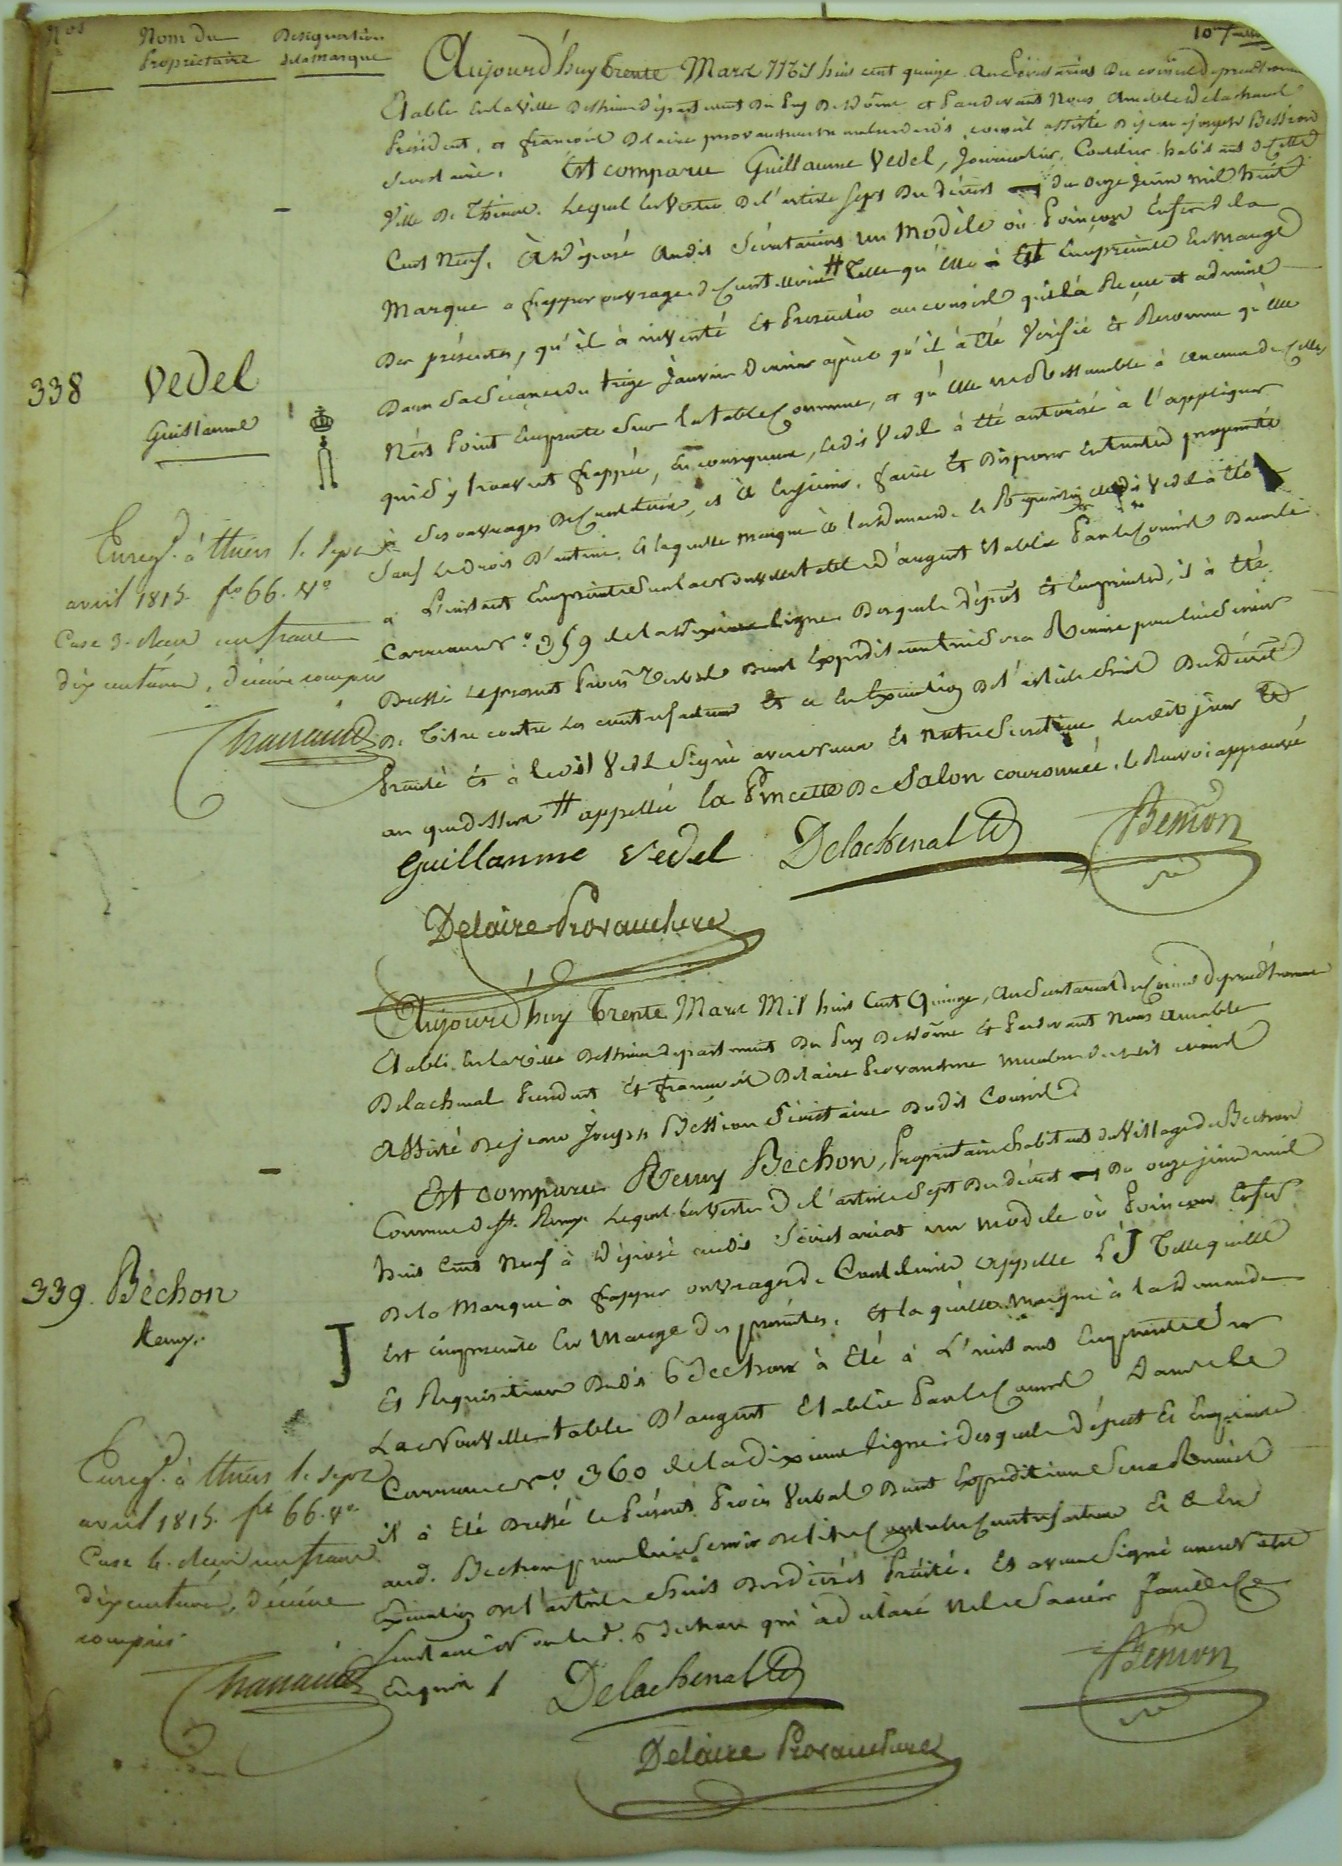 Nos Nom du Propriétaire Désignation de la marque
107
Aujourd'huy trente Mars Mil huit cent quinze au Sécrétariat du conseil de prud'hommes
Etablie en la ville de thiers département du Puy de dôme et Pardevant Nous Amable Delachenal
Président, et françois Delaire provauchere membre dudit conseil assisté de jean joseph Bession
Secretaire. Est comparu Guillaume Vedel, Coutelier habitant de cette
Ville de Thiers. Lequel en Vertu de l'article sept du décret du onze juin mil huit
Cent Neuf, à déposé audit Sécrétariat un Modèle où Poinçon Enfer de la
Marque a frapper ouvrages de Coutellerie # Telle qu'elle Est Empreinte En Marge
Des présentes, qu'il à inventé Et Presentée au conseil qui l'à Reçue et admise
Dans sa Séance du treize Janvier dernier après qu'il à été Vérifié Et Reconnu qu'elle
N'est Point Empreinte Sur la table Commune, et qu'elle ne Ressemble à aucune de Celles
qui S'y trouvent frappées, En consequence, ledit Vedel à été autorisé à l'appliquer
à Ses ouvrages De Coutellerie, et à En jouir, faire Et Disposer En toute propriété
Sauf le droit D'autrui, et laquelle marque à la demande et Requisition dudit Vedel à été
à L'instant Empreinte Sur la Nouvelle table d'argent Etablie Par le Conseil Dans le
Carreau N.º 359 de la dixieme ligne Desquels dépot Et Empreinte, il à été
Dressé le present Procès Verbal Dont Expedition Sera Remise pour lui Servir
De Titre contre les contrefacteurs Et ce En Execution de l'article huit Du décret
Précité Et à ledit Vedel Signé avec Nous Et Notre Secretaire lesdits jour Et
an que dessus # appellée la Pincette De Salon couronnée, le Renvoi approuvé
Guillaume Vedel Delachenal Bession
Delaire Provauchere
338 Vedel
Guillaume
Enreg.é à thiers le Sept
avril 1815. fo 66. Vo
Case 3. Reçu un franc
dix centimes, décime compris
Aujourd'huy Trente Mars Mil huit Cent Quinze, au Secretariat du Conseil de prud'homme
Etabli. En la Ville De thiers departement Du Puy De dôme Et Pardevant Nous Amable
Delachenal President Et françois Delaire Provauchere membre dudit conseil
Assisté de jean Joseph Bession Sécretaire Dudit Conseil
Est comparu Remy Bechon, Propriétaire habitant du Village de Bechon
Commune de St. Remy Lequel En Vertu De l'article Sept Du décret Du onze juin mil
huit Cent Neuf à Déposé audit Sécretariat un modele où Poinçon Enfer
De la Marque à frapper ouvrages de Coutellerie appellée L'J Telle qu'elle
Est empreinte En Marge des présentes. Et laquelle Marque à la demande
Et Requisition Dudit Bechon à Eté à L'instant Empreinte Sur
La Nouvelle table D'argent Etablie Par le Conseil Dans le
Carreau N.º 360 de la dixieme ligne: desquels dépot Et Empreinte
il à Eté Dressé le Présent Procès Verbal Dont Expedition Sera Remise
aud. Bechon pour lui Servir de titre Contre les Contrefacteurs Et Ce En
Execution de l'article huit Du décret Précité. Et avons Signé avec Notre
Secretaire Non led. Bechon qui à déclaré Ne le Savoir faire de Ce
Enquis / Delachenal Bession
Delaire Provauchere
339. Bechon
Remy.
J
Enreg.é à thiers le Sept
avril 1815. fo 66. Vo
Case 4. Reçu un franc
dix centimes, décime
compris